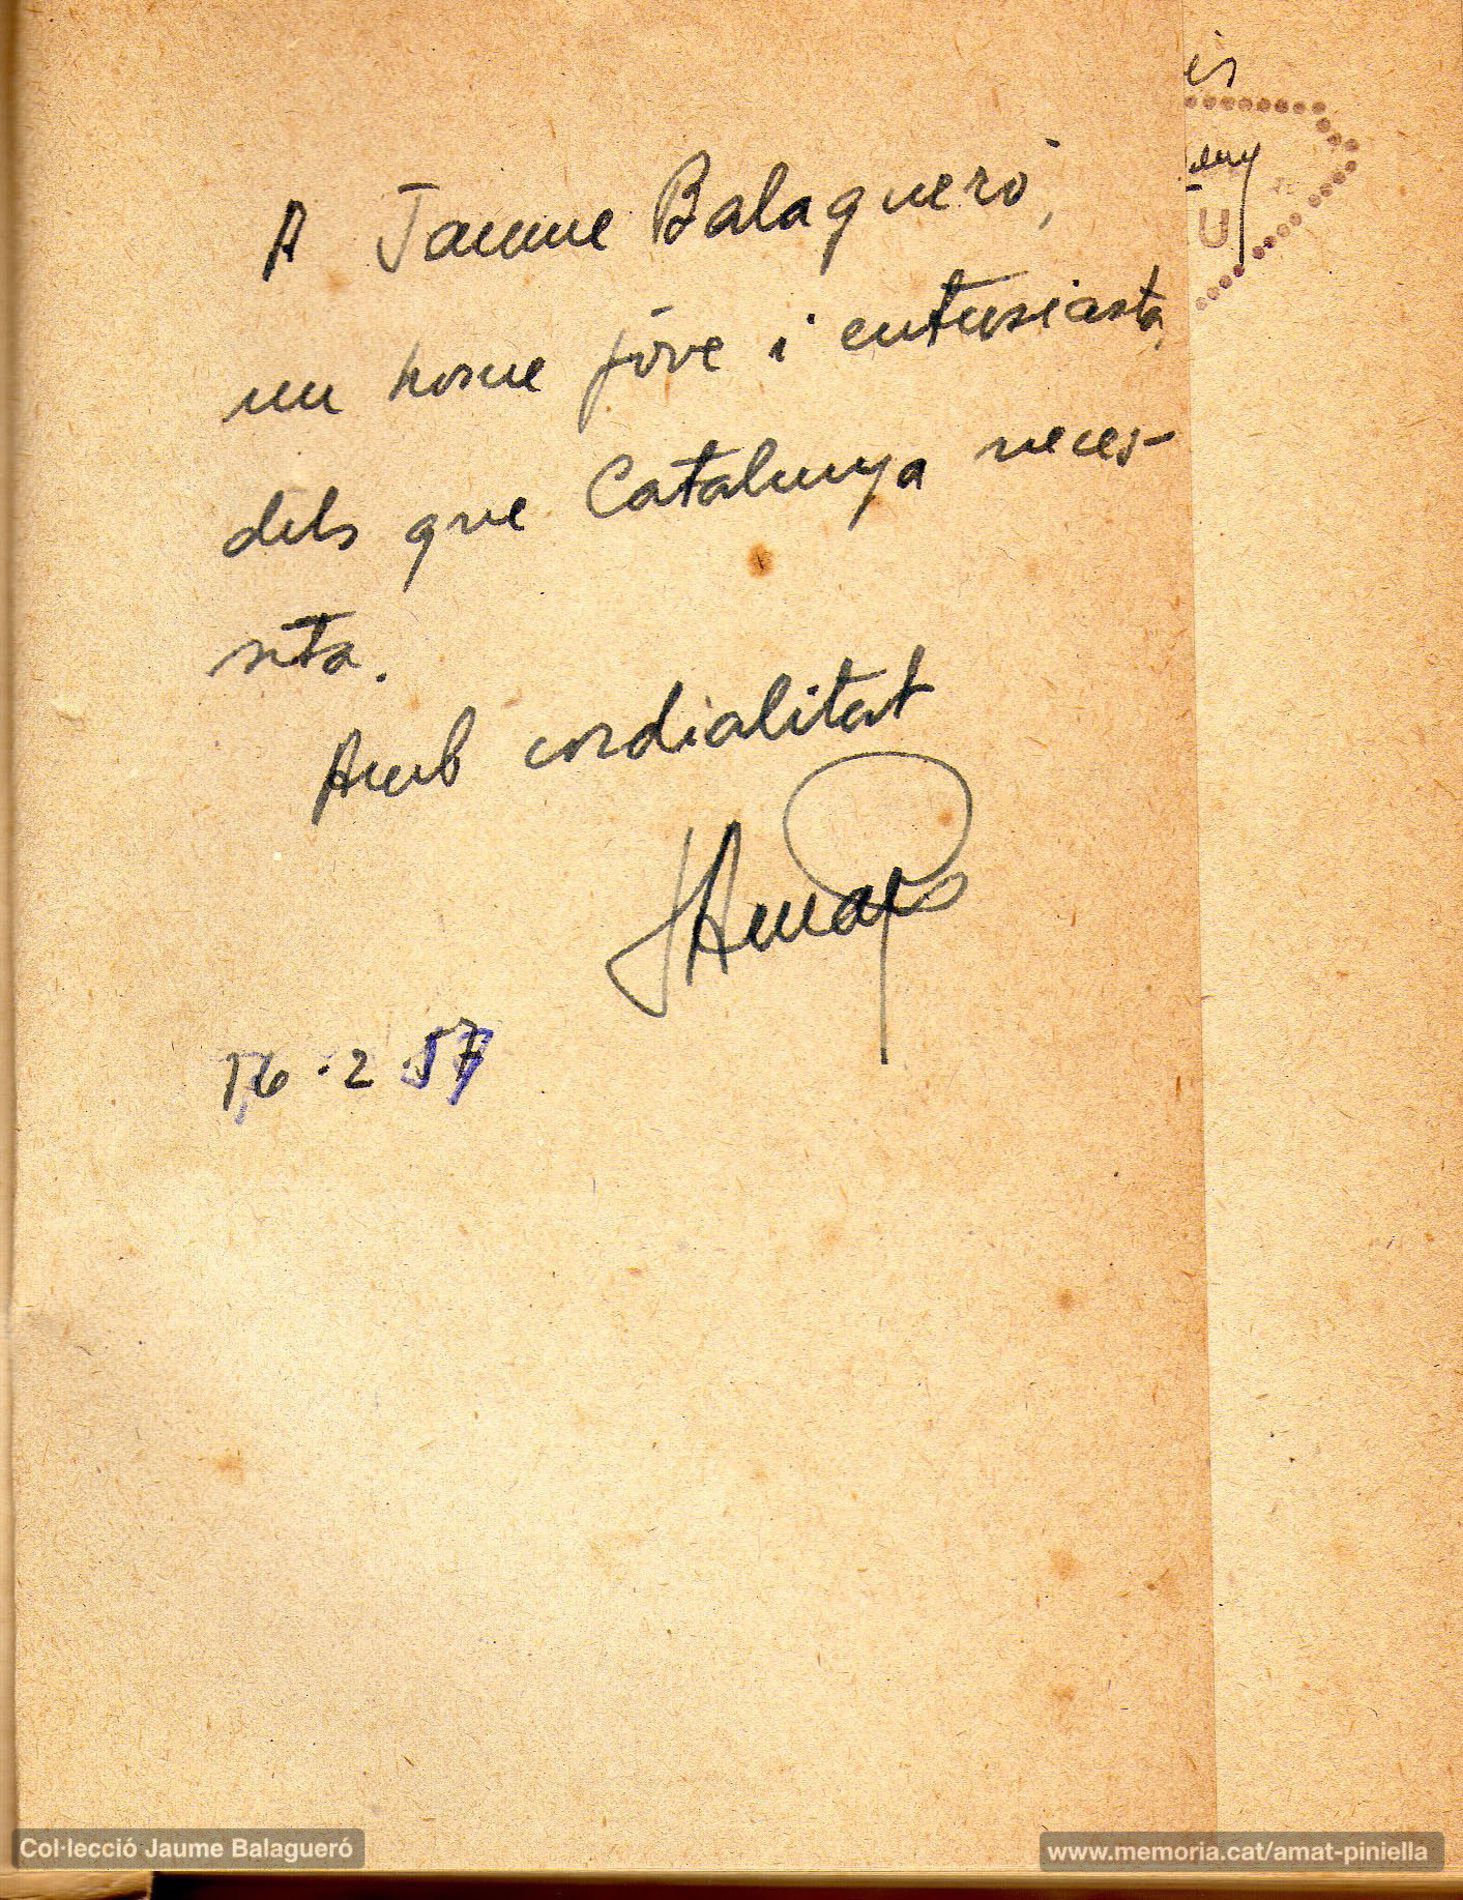 A Jaume Balagueró,
un home jove i entusiasta,
dels que Catalunya neces-
sita.
Amb cordialitat
JAmat
16·2·57
is
eny
U
Col·lecció Jaume Balagueró
www.memoria.cat/amat-piniella